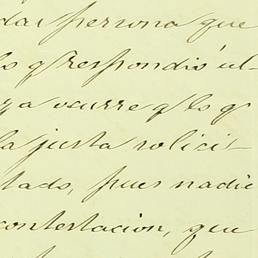 dar persona que
respondió ul-
ya ocurre q̃ls q̃
la justa solici-
tado, pues nadie
contestacion, que